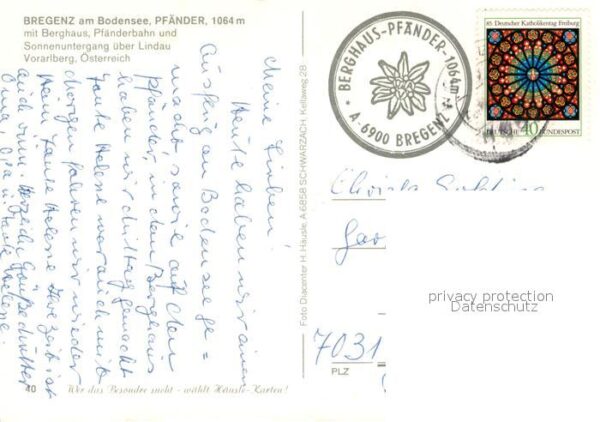 BREGENZ am Bodensee, PFÄNDER, 1064 m
mit Berghaus, Pfänderbahn und
Sonnenuntergang über Lindau
Vorarlberg, Österreich
Meine Lieben!
Heute haben wir einen
Ausflug an Bodensee ge=
macht sowie auf den
Pfänder, in dem Berghaus
haben wir Mittag gemacht
Tante Helene war auch mit
Morgen fahren wir wieder
Heim, Tante Helene ist
auch Herzliche Grüße
Oma, Opa u. Tante Helene.
40
Wer das Besondre sucht - wählt Häusle-Karten!
Foto Diacenter H. Häusle, A 6858 SCHWARZACH, Kellaweg 28
BERGHAUS-PFÄNDER-1064m
A-6900 BREGENZ
85. Deutscher Katholikentag Freiburg
DEUTSCHE 40 BUNDESPOST
Christa
7031
PLZ
privacy protection
Datenschutz